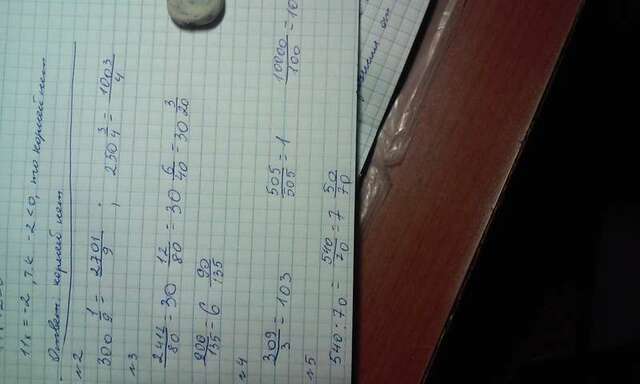 11x = -2, т.к -2 < 0, то корней нет
Ответ: корней нет
№2
300 1/9 = 2701/9 ; 250 3/4 = 1003/4
№3
2412/80 = 30 12/80 = 30 6/40 = 30 3/20
900/135 = 6 90/135
№4
309/3 = 103 505/505 = 1 10000/100 = 10
№5
540 : 70 = 540/70 = 7 50/70